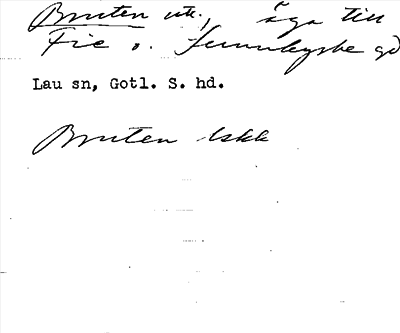 Bruten utr., äga till
Fie o. gd
Lau sn, Gotl. S. hd.
Bruten